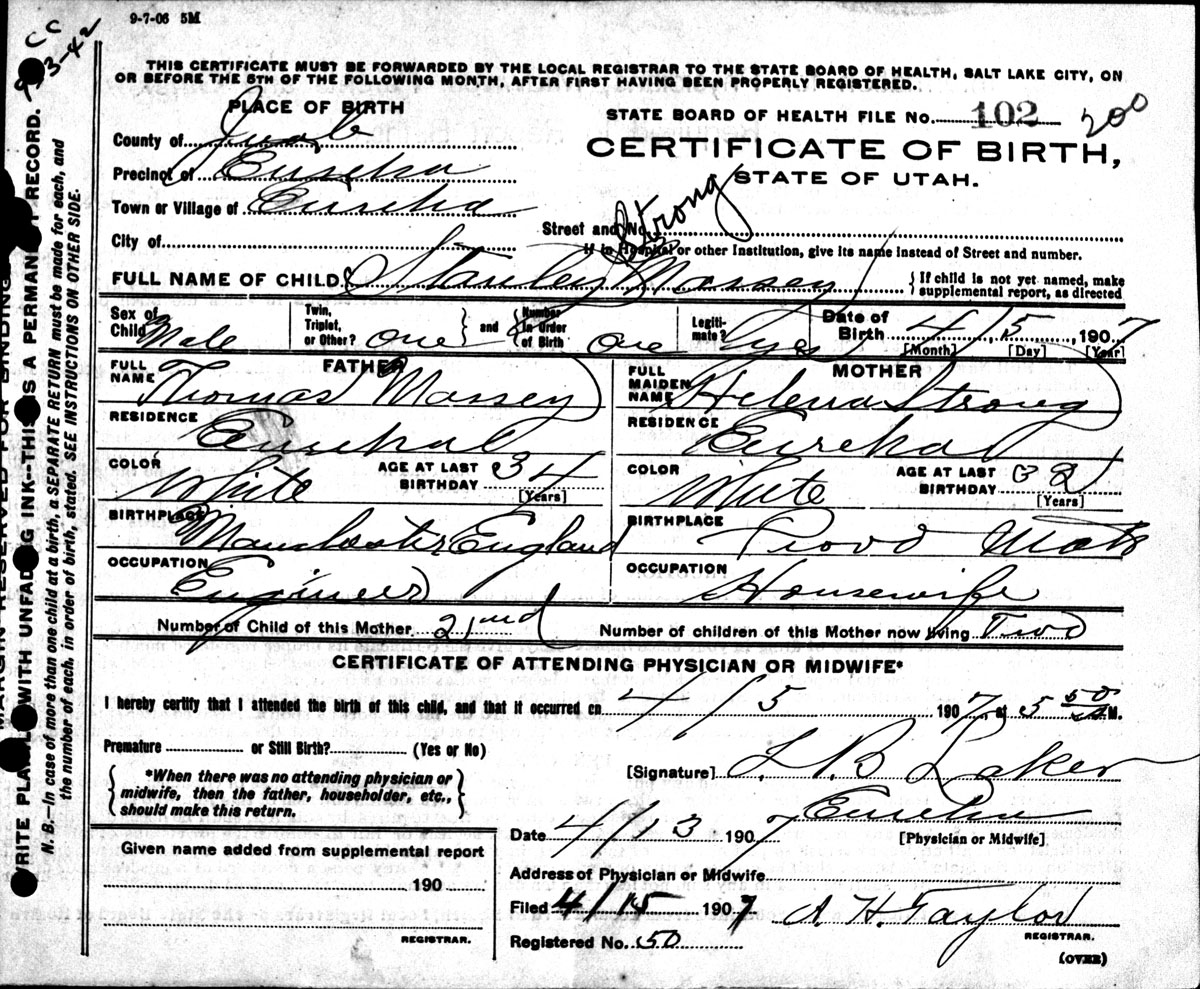 9-7-06 5M
CC
THIS CERTIFICATE MUST BE FORWARDED BY THE LOCAL REGISTRAR TO THE STATE BOARD OF HEALTH, SALT LAKE CITY, ON
OR BEFORE THE 5TH OF THE FOLLOWING MONTH, AFTER FIRST HAVING BEEN PROPERLY REGISTERED.
WRITE PLAINLY WITH UNFADING INK--THIS IS A PERMANENT RECORD.
MARGIN RESERVED FOR BINDING
N. B.—In case of more than one child at a birth, a SEPARATE RETURN must be made for each, and
the number of each, in order of birth, stated. SEE INSTRUCTIONS ON OTHER SIDE.
PLACE OF BIRTH
County of Juab
Precinct of Eureka
Town or Village of Eureka
City of
STATE BOARD OF HEALTH FILE NO. 102 200
CERTIFICATE OF BIRTH,
STATE OF UTAH.
Street and No.
If in Hospital or other Institution, give its name instead of Street and number.
FULL NAME OF CHILD Stanley Strong Massey
If child is not yet named, make
supplemental report, as directed
Sex of Child Male
Twin, Triplet, or Other? one
and Number in Order of Birth one
Legitimate? yes
Date of Birth 4 15 1907
[Month] [Day] [Year]
FATHER
FULL NAME Thomas Massey
RESIDENCE Eureka
COLOR White
AGE AT LAST BIRTHDAY 34
[Years]
BIRTHPLACE Manchester England
OCCUPATION Engineer
MOTHER
FULL MAIDEN NAME Helena Strong
RESIDENCE Eureka
COLOR White
AGE AT LAST BIRTHDAY 32
[Years]
BIRTHPLACE Provo
OCCUPATION Housewife
Number of Child of this Mother 2nd
Number of children of this Mother now living Two
CERTIFICATE OF ATTENDING PHYSICIAN OR MIDWIFE*
I hereby certify that I attended the birth of this child, and that it occurred on 4/5 1907, at 5 50 M.
Premature or Still Birth? (Yes or No)
*When there was no attending physician or
midwife, then the father, householder, etc.,
should make this return.
[Signature] L. B. Laker
Eureka
[Physician or Midwife]
Date 4/13 1907
Given name added from supplemental report
190
REGISTRAR.
Address of Physician or Midwife
Filed 4/15 1907 A. H. Taylor
REGISTRAR.
Registered No. 50
(OVER)